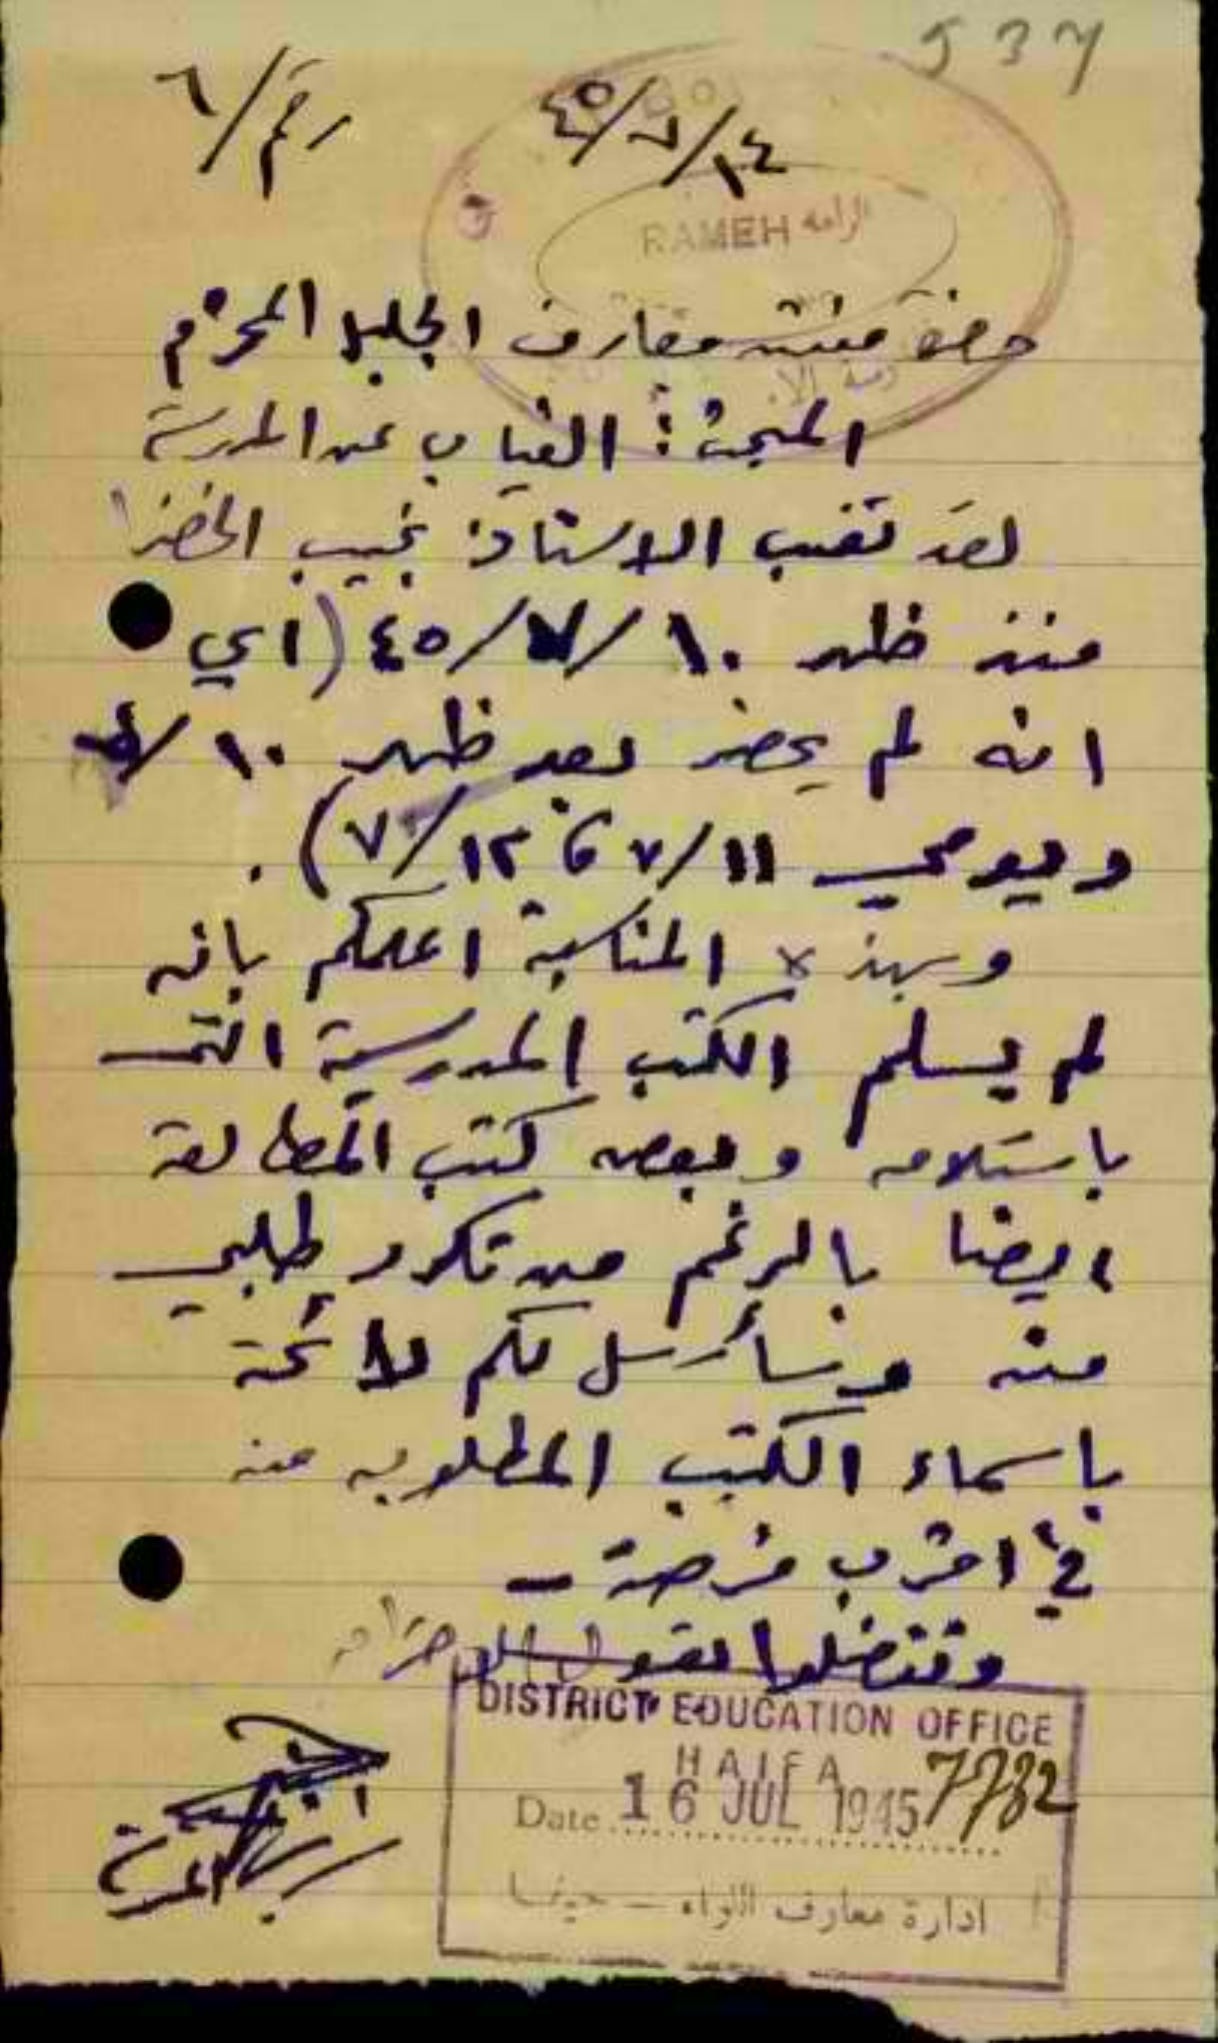 537
رقم/٦
٤٥/٧/١٤
RAMEH الرامه
حضرة مفتش معارف الجليل المحترم
المبحث : الغياب عن المدرسة
لقد تغيب الاستاذ نجيب الخضرا
منذ ظهر ٤٥/٧/١٠ (اي
انه لم يحضر بعد ظهر ١٠/
ويومي ٧/١١ و ٧/١٢).
وبهذه المناسبة اعلمكم بانه
لم يسلم الكتب المدرسية التي
باستلامه وبعض كتب المطالعة
ايضا بالرغم من تكرر طلبي
منه وسأرسل لكم لائحة
باسماء الكتب المطلوبه منه
في اقرب فرصة -
وتفضلوا بقبول الاحترام
DISTRICT EDUCATION OFFICE
HAIFA
7782
Date 16 JUL 1945
ادارة معارف اللواء - حيفا
المدرسة